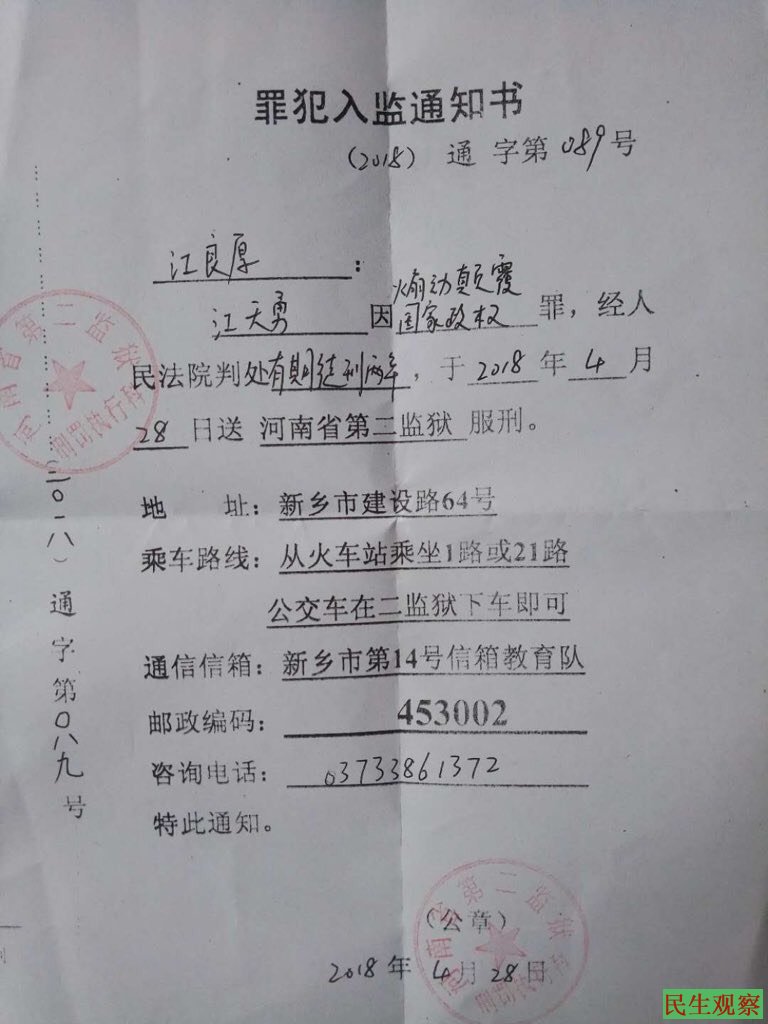 罪犯入监通知书
（2018）通 字第 089号
江良厚：
江天勇 因 煽动颠覆
国家政权 罪，经人
民法院判处有期徒刑两年，于 2018 年 4 月
28 日送 河南省第二监狱 服刑。
地 址：新乡市建设路64号
乘车路线：从火车站乘坐1路或21路
公交车在二监狱下车即可
通信信箱：新乡市第14号信箱教育队
邮政编码：453002
咨询电话：03733861372
特此通知。
（公章）
2018 年 4 月 28 日
（二〇一八）通字第〇八九号
河南省第二监狱
刑罚执行科
河南省第二监狱
刑罚执行科
民生观察